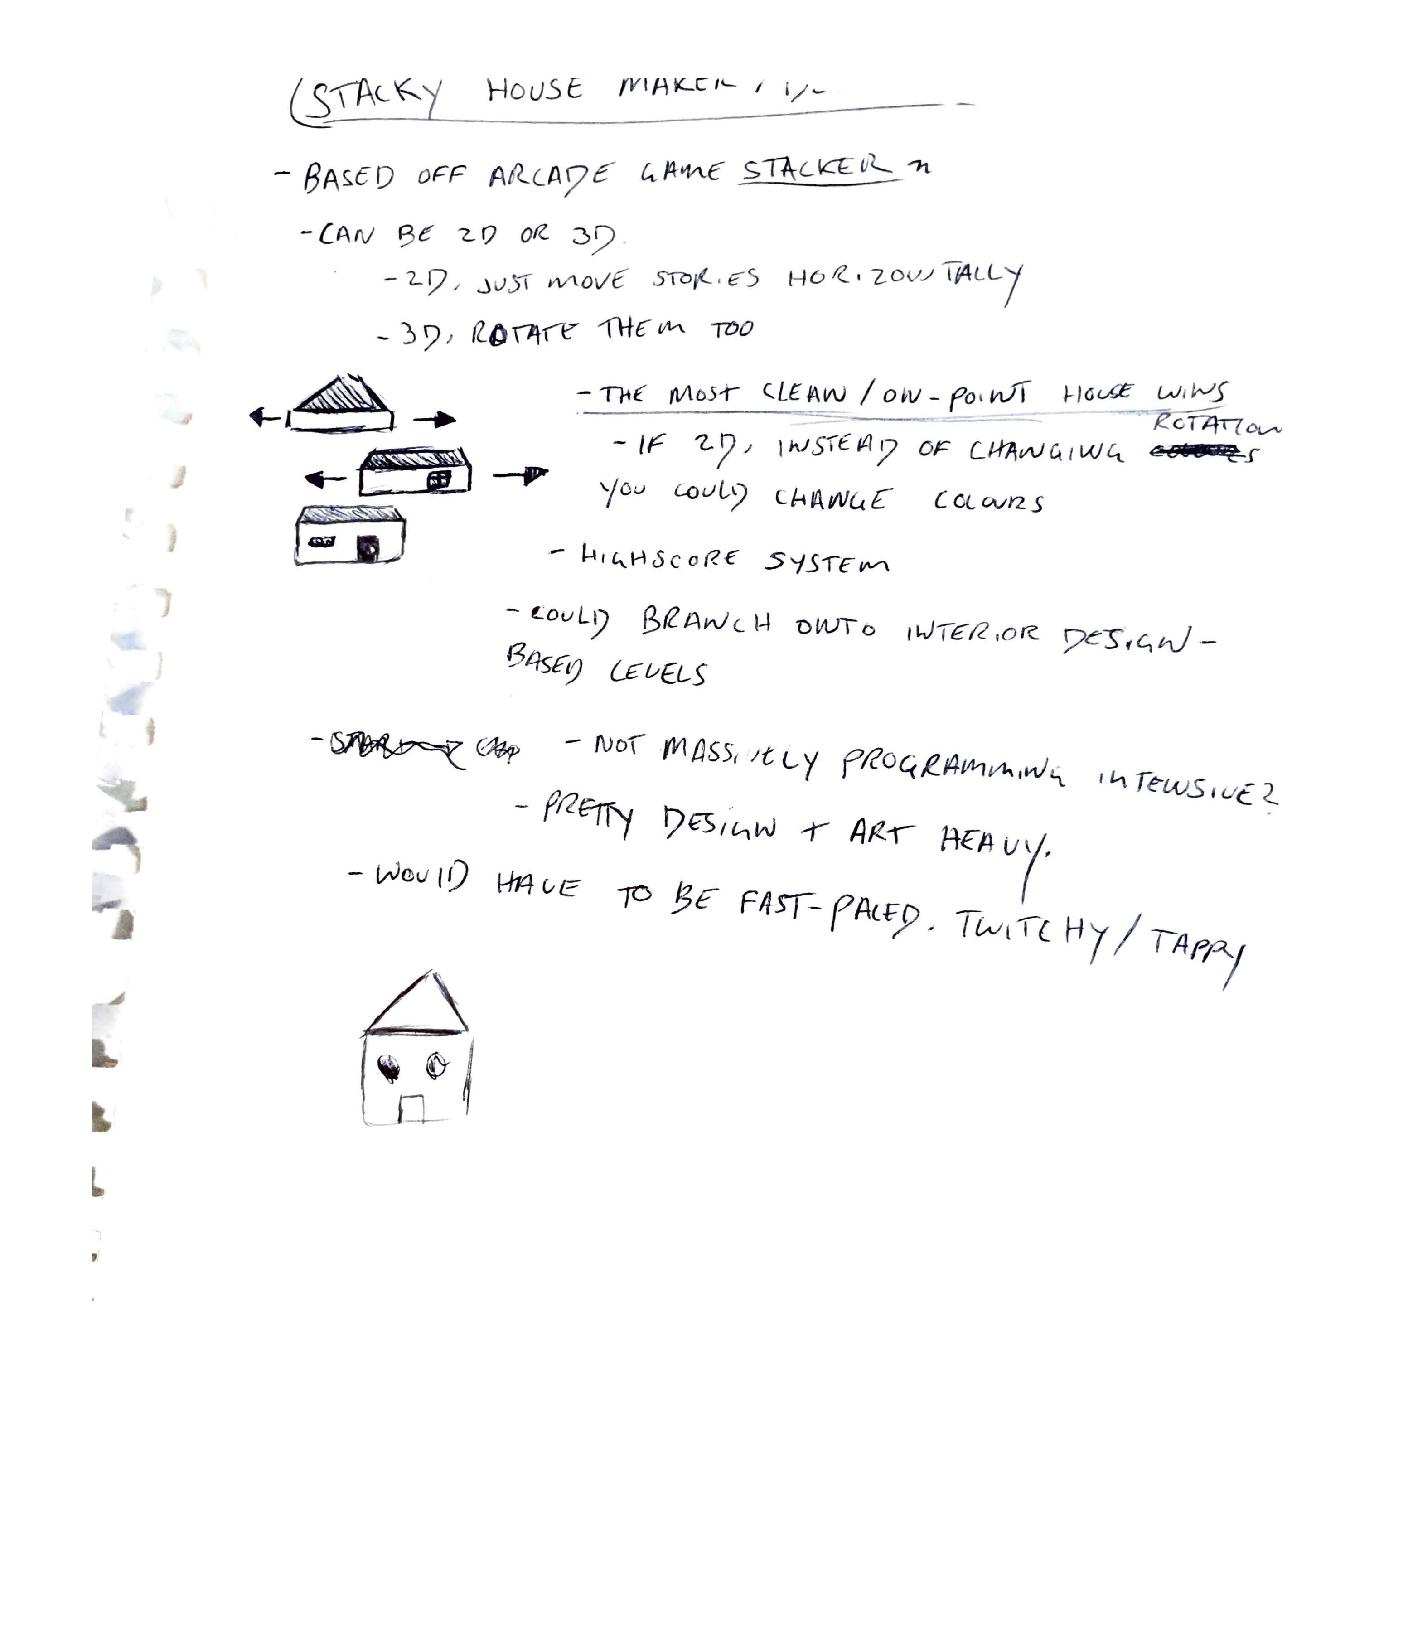 STACKY HOUSE MAKER
- BASED OFF ARCADE GAME STACKER
- CAN BE 2D OR 3D.
- 2D, JUST MOVE STORIES HORIZONTALLY
- 3D, ROTATE THEM TOO
- THE MOST CLEAN / ON-POINT HOUSE WINS
ROTATION
- IF 2D, INSTEAD OF CHANGING
YOU COULD CHANGE COLOURS
- HIGHSCORE SYSTEM
- COULD BRANCH ONTO INTERIOR DESIGN -
BASED LEVELS
- NOT MASSIVELY PROGRAMMING INTENSIVE?
- PRETTY DESIGN + ART HEAVY.
- WOULD HAVE TO BE FAST-PACED. TWITCHY / TAPPY